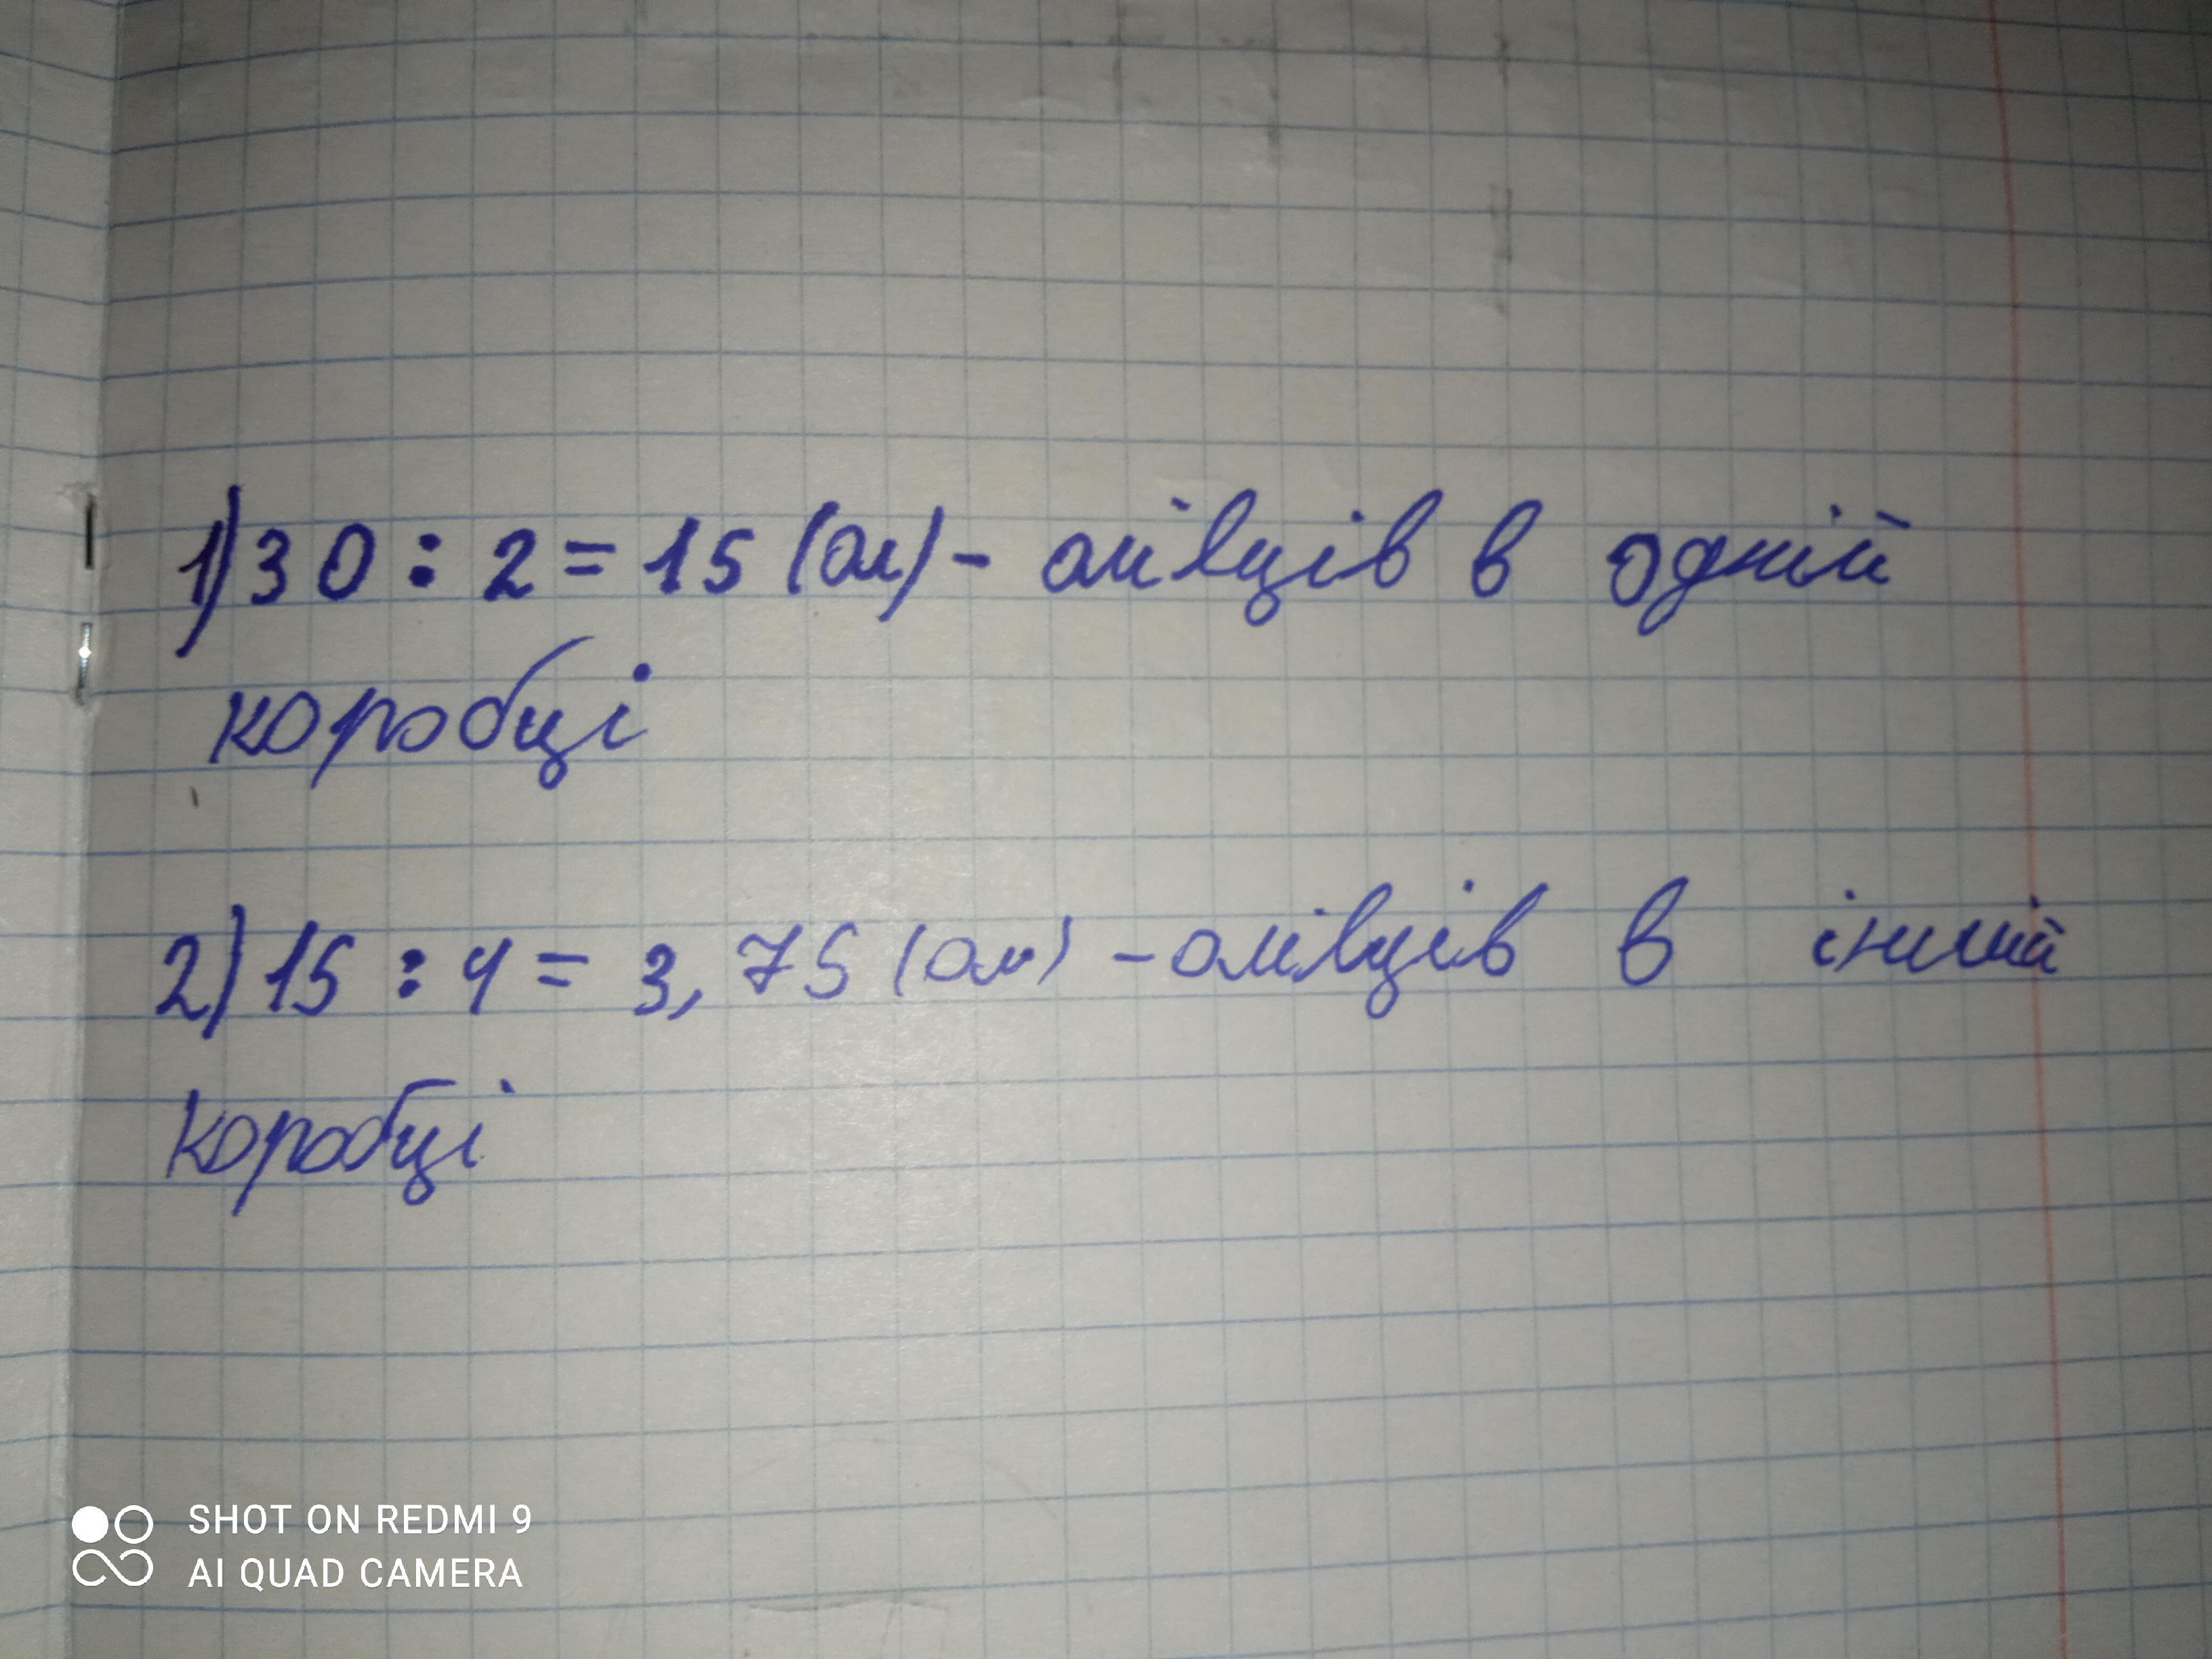 1) 30 : 2 = 15 (ол) - олівців в одній
коробці
2) 15 : 4 = 3,75 (ол) - олівців в іншій
коробці
SHOT ON REDMI 9
AI QUAD CAMERA